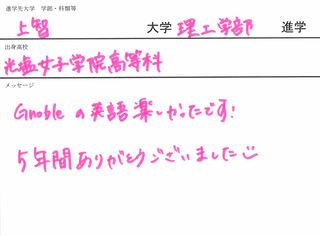 進学先大学 学部・科類等
上智 大学 理工学部 進学
出身高校
光塩女子学院高等科
メッセージ
Gnobleの英語楽しかったです!
5年間ありがとうございました